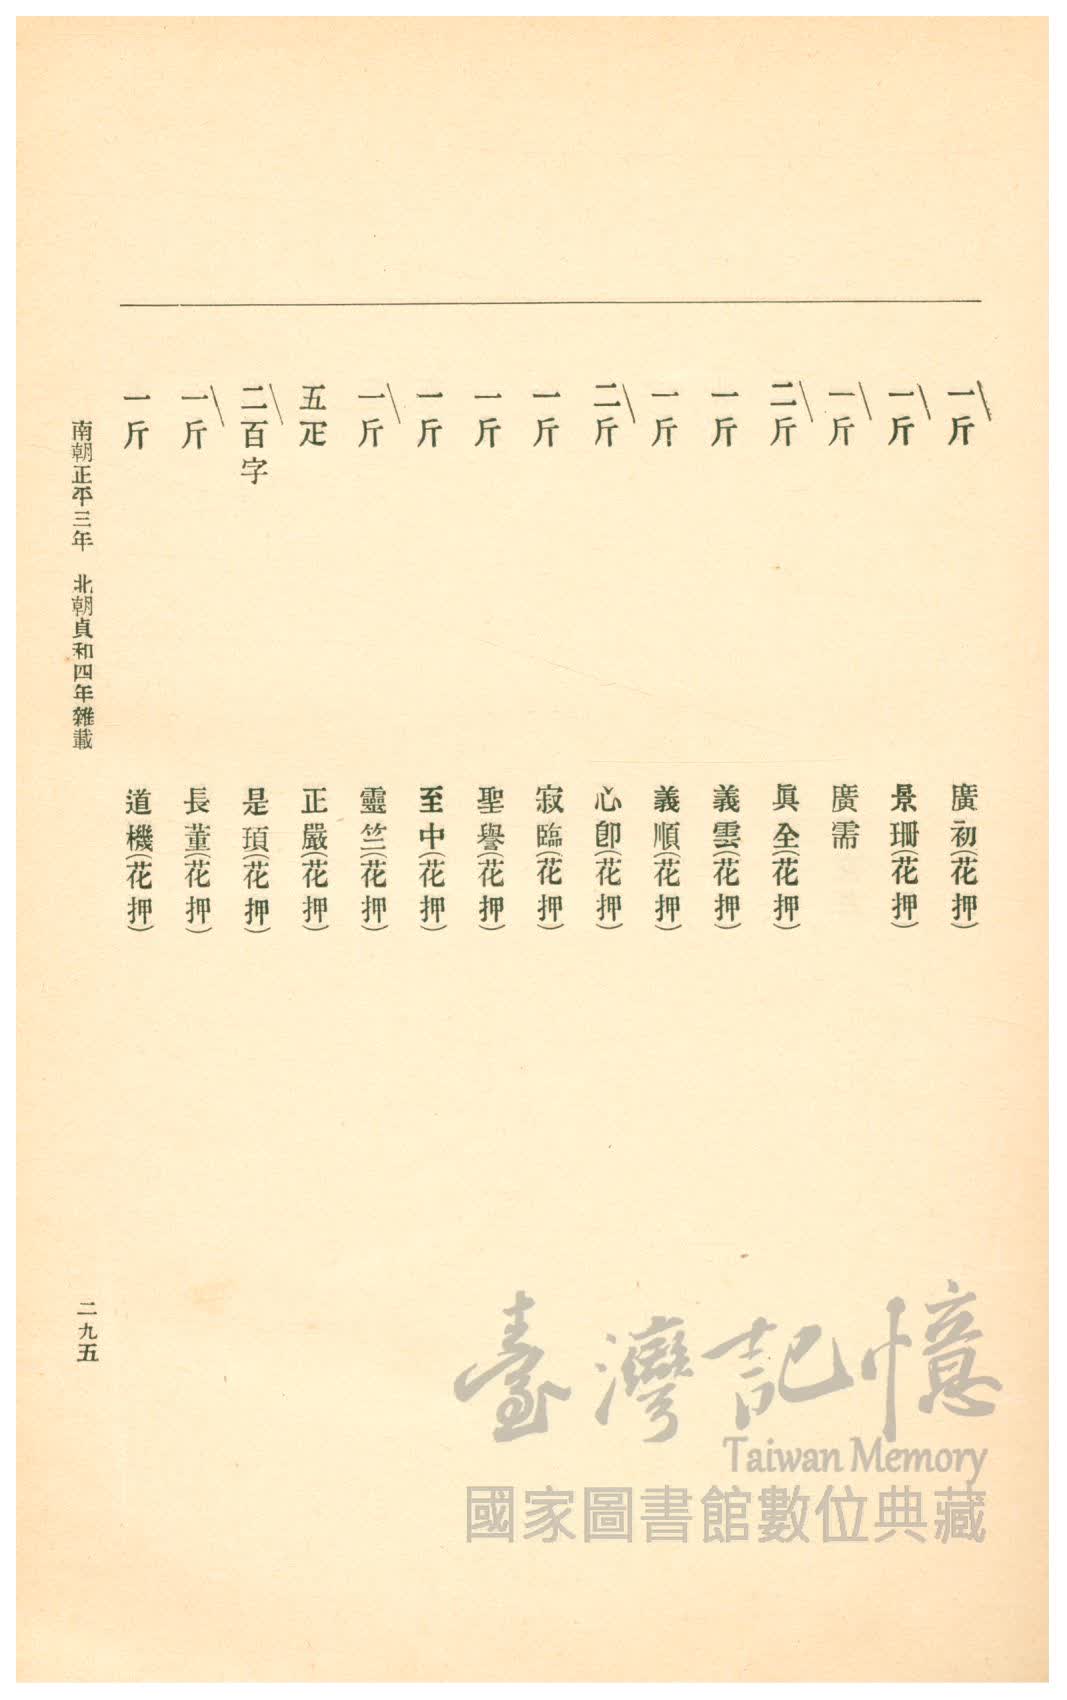 一斤　廣初(花押)
一斤　景珊(花押)
一斤　廣需
二斤　眞全(花押)
一斤　義雲(花押)
一斤　義順(花押)
二斤　心卽(花押)
一斤　寂臨(花押)
一斤　聖譽(花押)
一斤　至中(花押)
一斤　靈竺(花押)
五疋　正嚴(花押)
二百字　是頊(花押)
一斤　長董(花押)
一斤　道機(花押)
南朝正平三年　北朝貞和四年雜載
二九五
臺灣記憶
Taiwan Memory
國家圖書館數位典藏